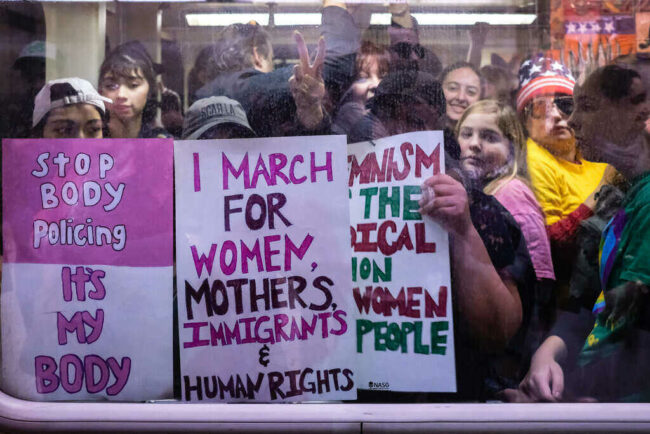 STOP
BODY
Policing
IT'S
MY
BODY
I MARCH
FOR
WOMEN,
MOTHERS,
IMMIGRANTS
&
HUMAN RIGHTS
MNISM
THE
DICAL
ION
WOMEN
PEOPLE
NASG